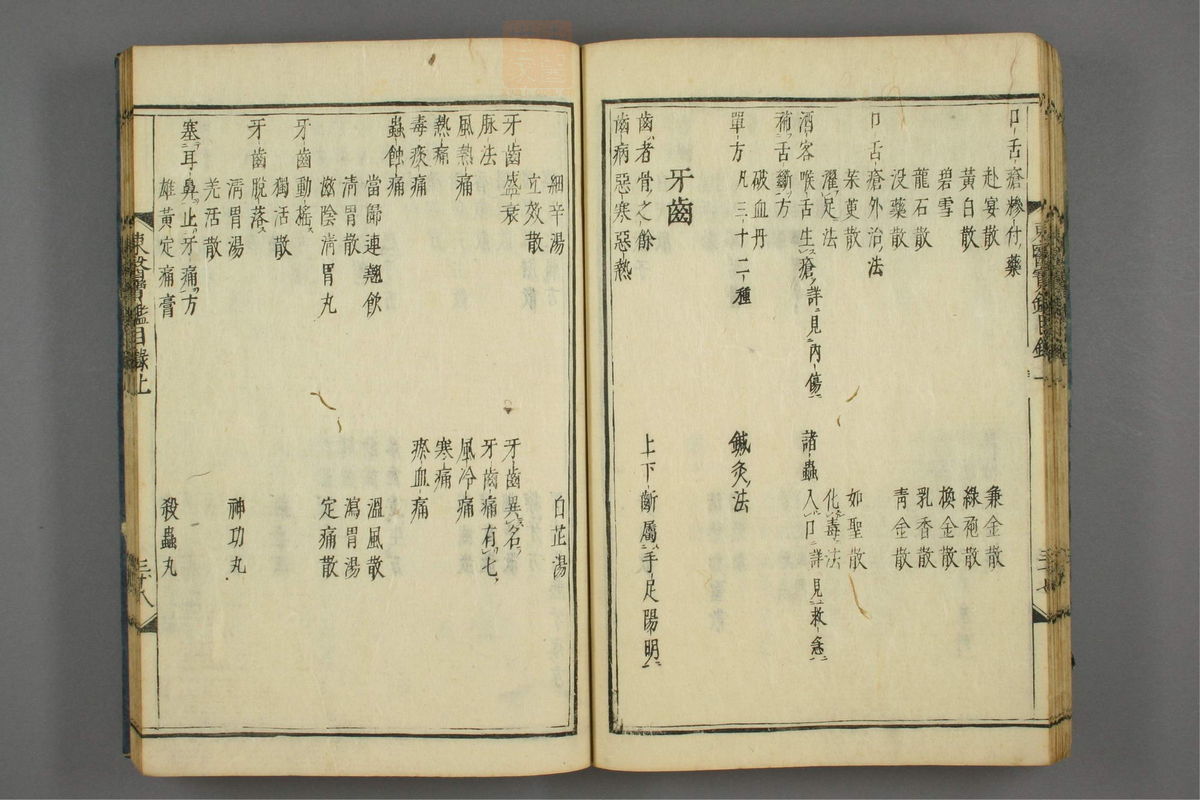 口舌瘡糝付藥
赴宴散　兼金散
黃白散　綠袍散
碧雪　換金散
龍石散　乳香散
没藥散　青金散
口舌瘡外治法
茱萸散　如聖散
濯足法　化毒法
酒客喉舌生瘡詳見內傷　諸蟲入口詳見救急
補舌斷方
破血丹
單方凡三十二種　鍼灸法
牙齒
齒者骨之餘　上下齗屬手足陽明
齒病惡寒惡熱
東醫寶鑑目錄上　三十七
細辛湯　白芷湯
立效散
牙齒盛衰　牙齒異名
脉法　牙齒痛有七
風熱痛　風冷痛
熱痛　寒痛
毒痰痛　瘀血痛
蟲蝕痛
當歸連翹飲　溫風散
清胃散　瀉胃湯
滋陰淸胃丸　定痛散
牙齒動搖
獨活散
牙齒脫落
淸胃湯　神功丸
羌活散
塞耳鼻止牙痛方
雄黃定痛膏　殺蟲丸
東醫寶鑑目錄上　三十八